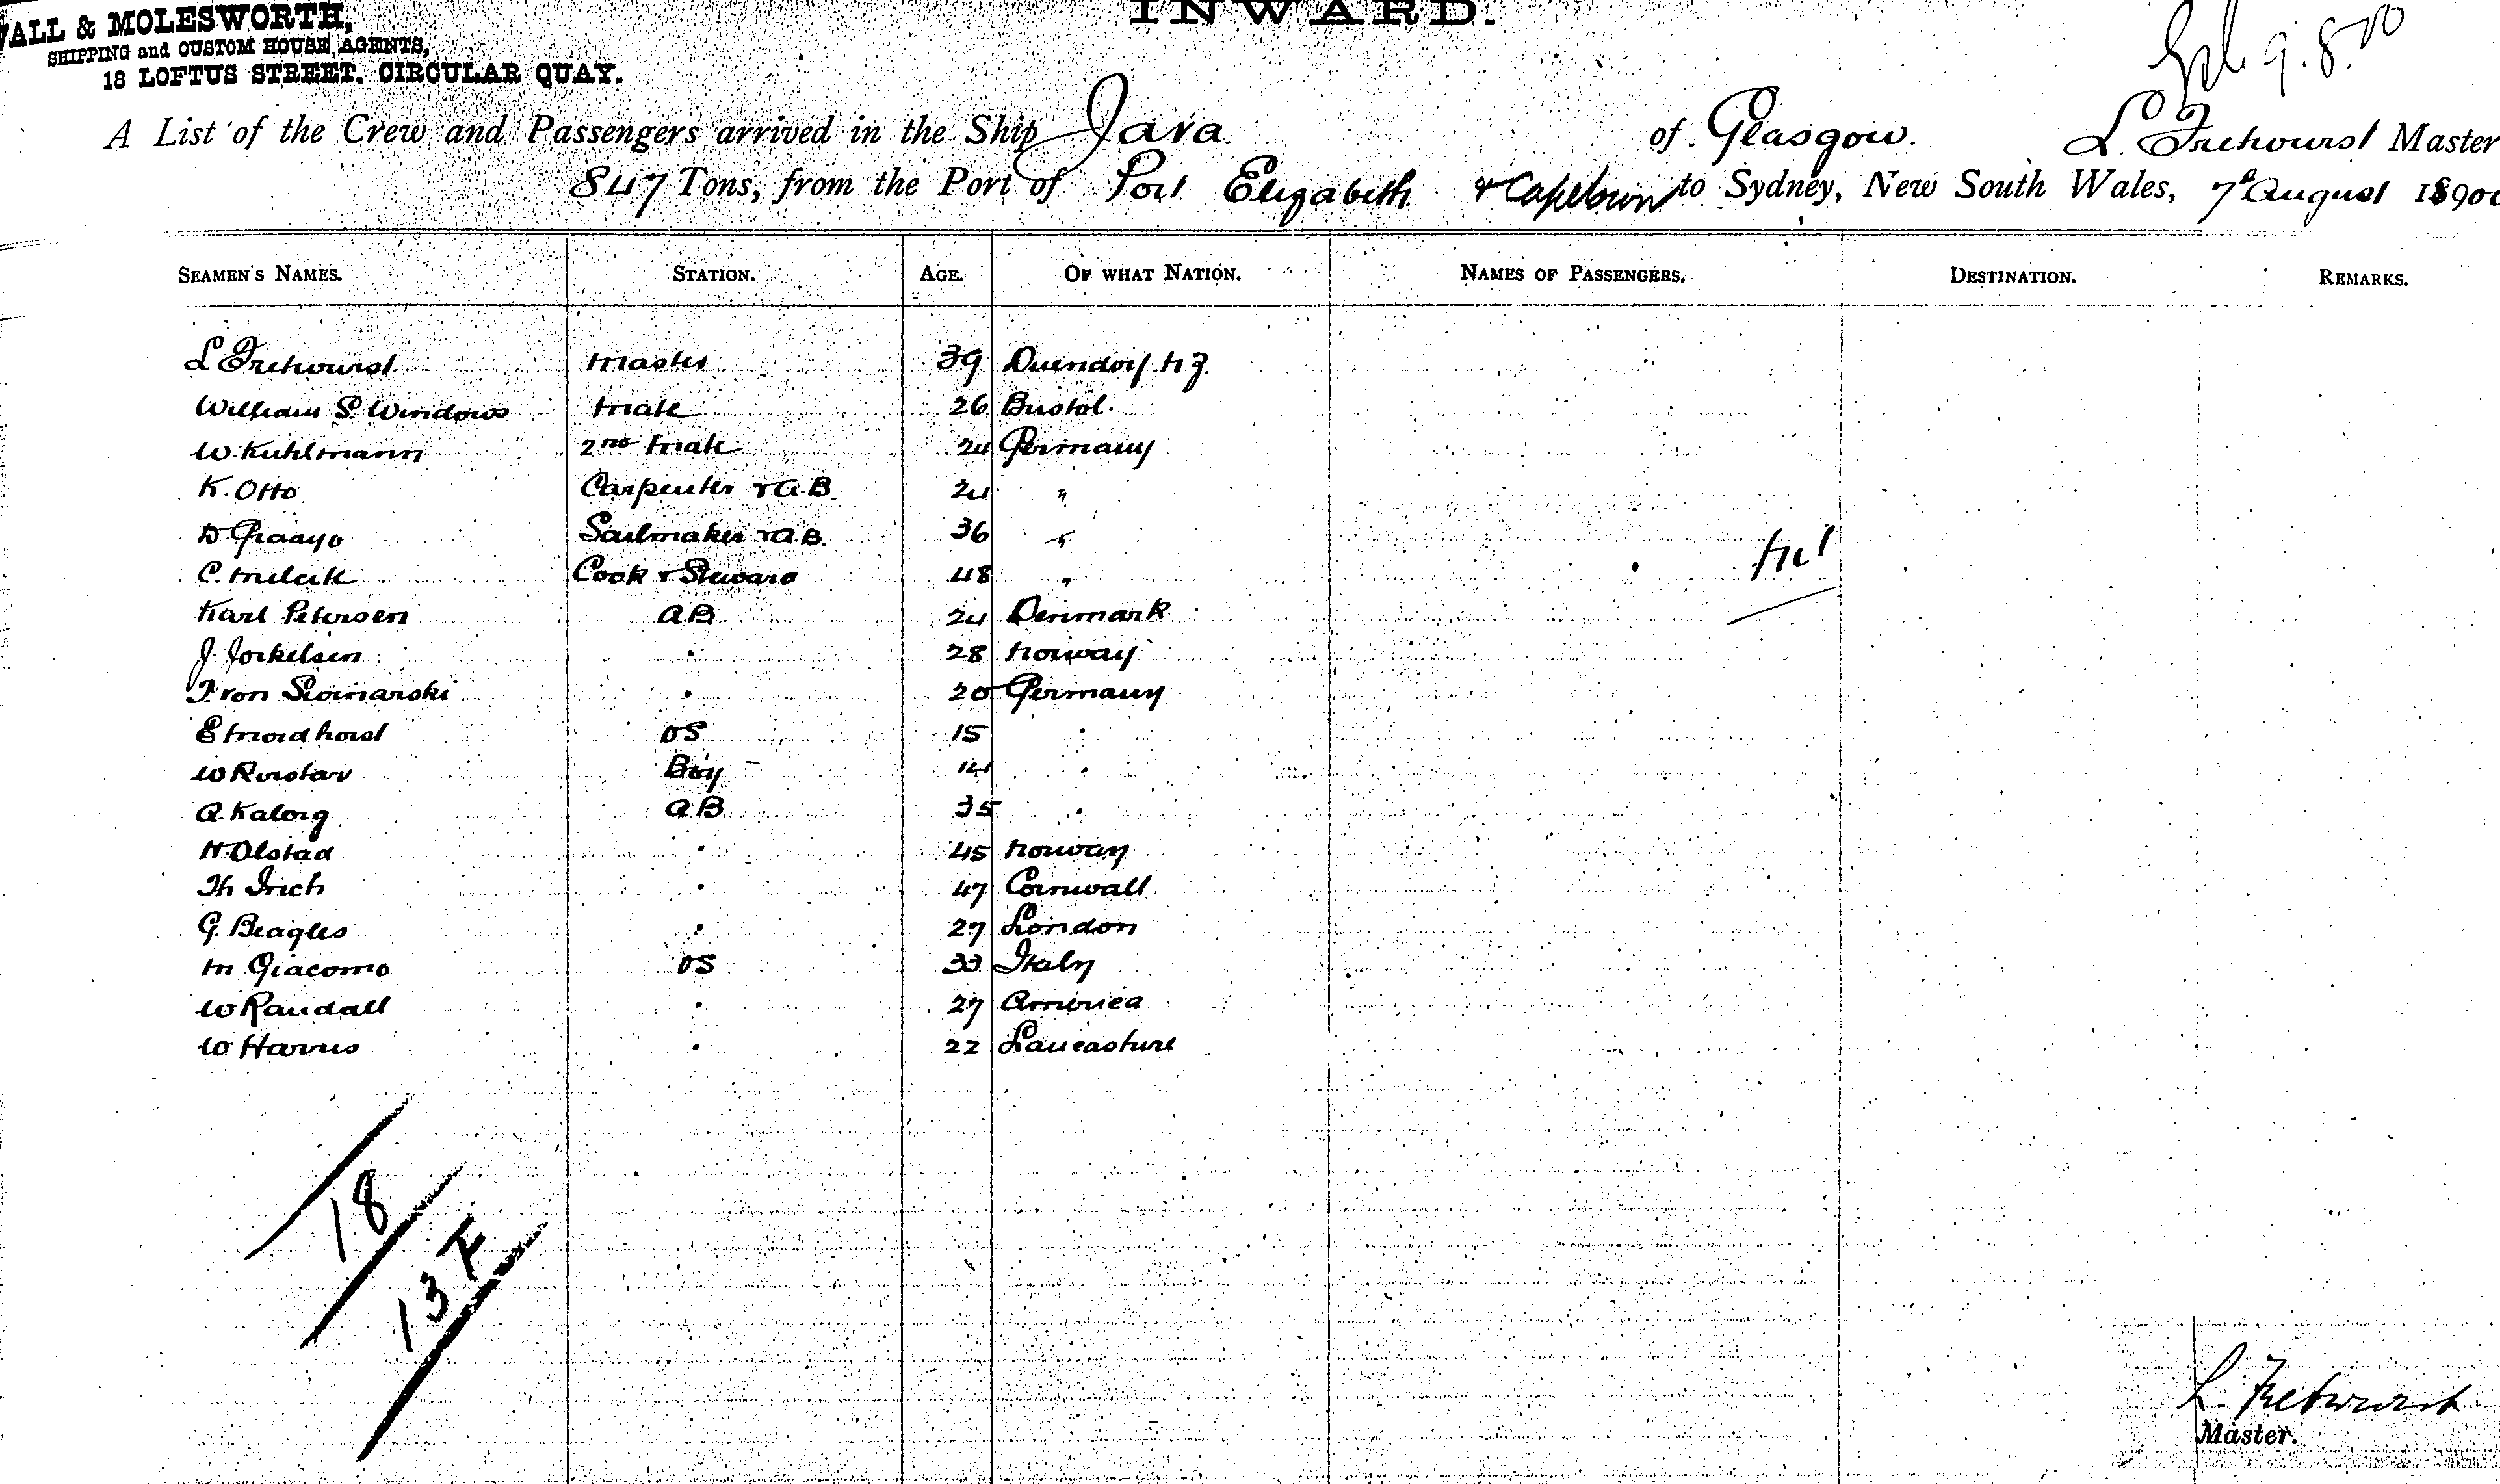 WALL & MOLESWORTH,
SHIPPING and CUSTOM HOUSE AGENTS,
18 LOFTUS STREET, CIRCULAR QUAY.
INWARD.
9.8.00
A List of the Crew and Passengers arrived in the Ship Java of Glasgow. L. Master
847 Tons, from the Port of Port Elizabeth & Capetown to Sydney, New South Wales, 7th August 1900
SEAMEN'S NAMES. STATION. AGE. OF WHAT NATION. NAMES OF PASSENGERS. DESTINATION. REMARKS.
L Master 39
William S. Windows Mate 26 Bristol.
W. Kuhlmann 2nd Mate 24 Germany
K. Otto Carpenter & A.B. 24 "
D Sailmaker & A.B. 36 "
C. Cook & Steward 48 "
Nil
Karl Petersen AB 24 Denmark
J. Jorkelsen " 28 Norway
von " 20 Germany
E Mordhorst OS 15 "
W Boy 14 "
A. Kalong AB 35 "
H. Olstad " 45 Norway
Th Irich " 47 Cornwall
G. Beagles " 27 London
M Giacomo OS 33 Italy
W Randall " 27 America
W Harris " 22 Lancashire
18
13 F
L.
Master.